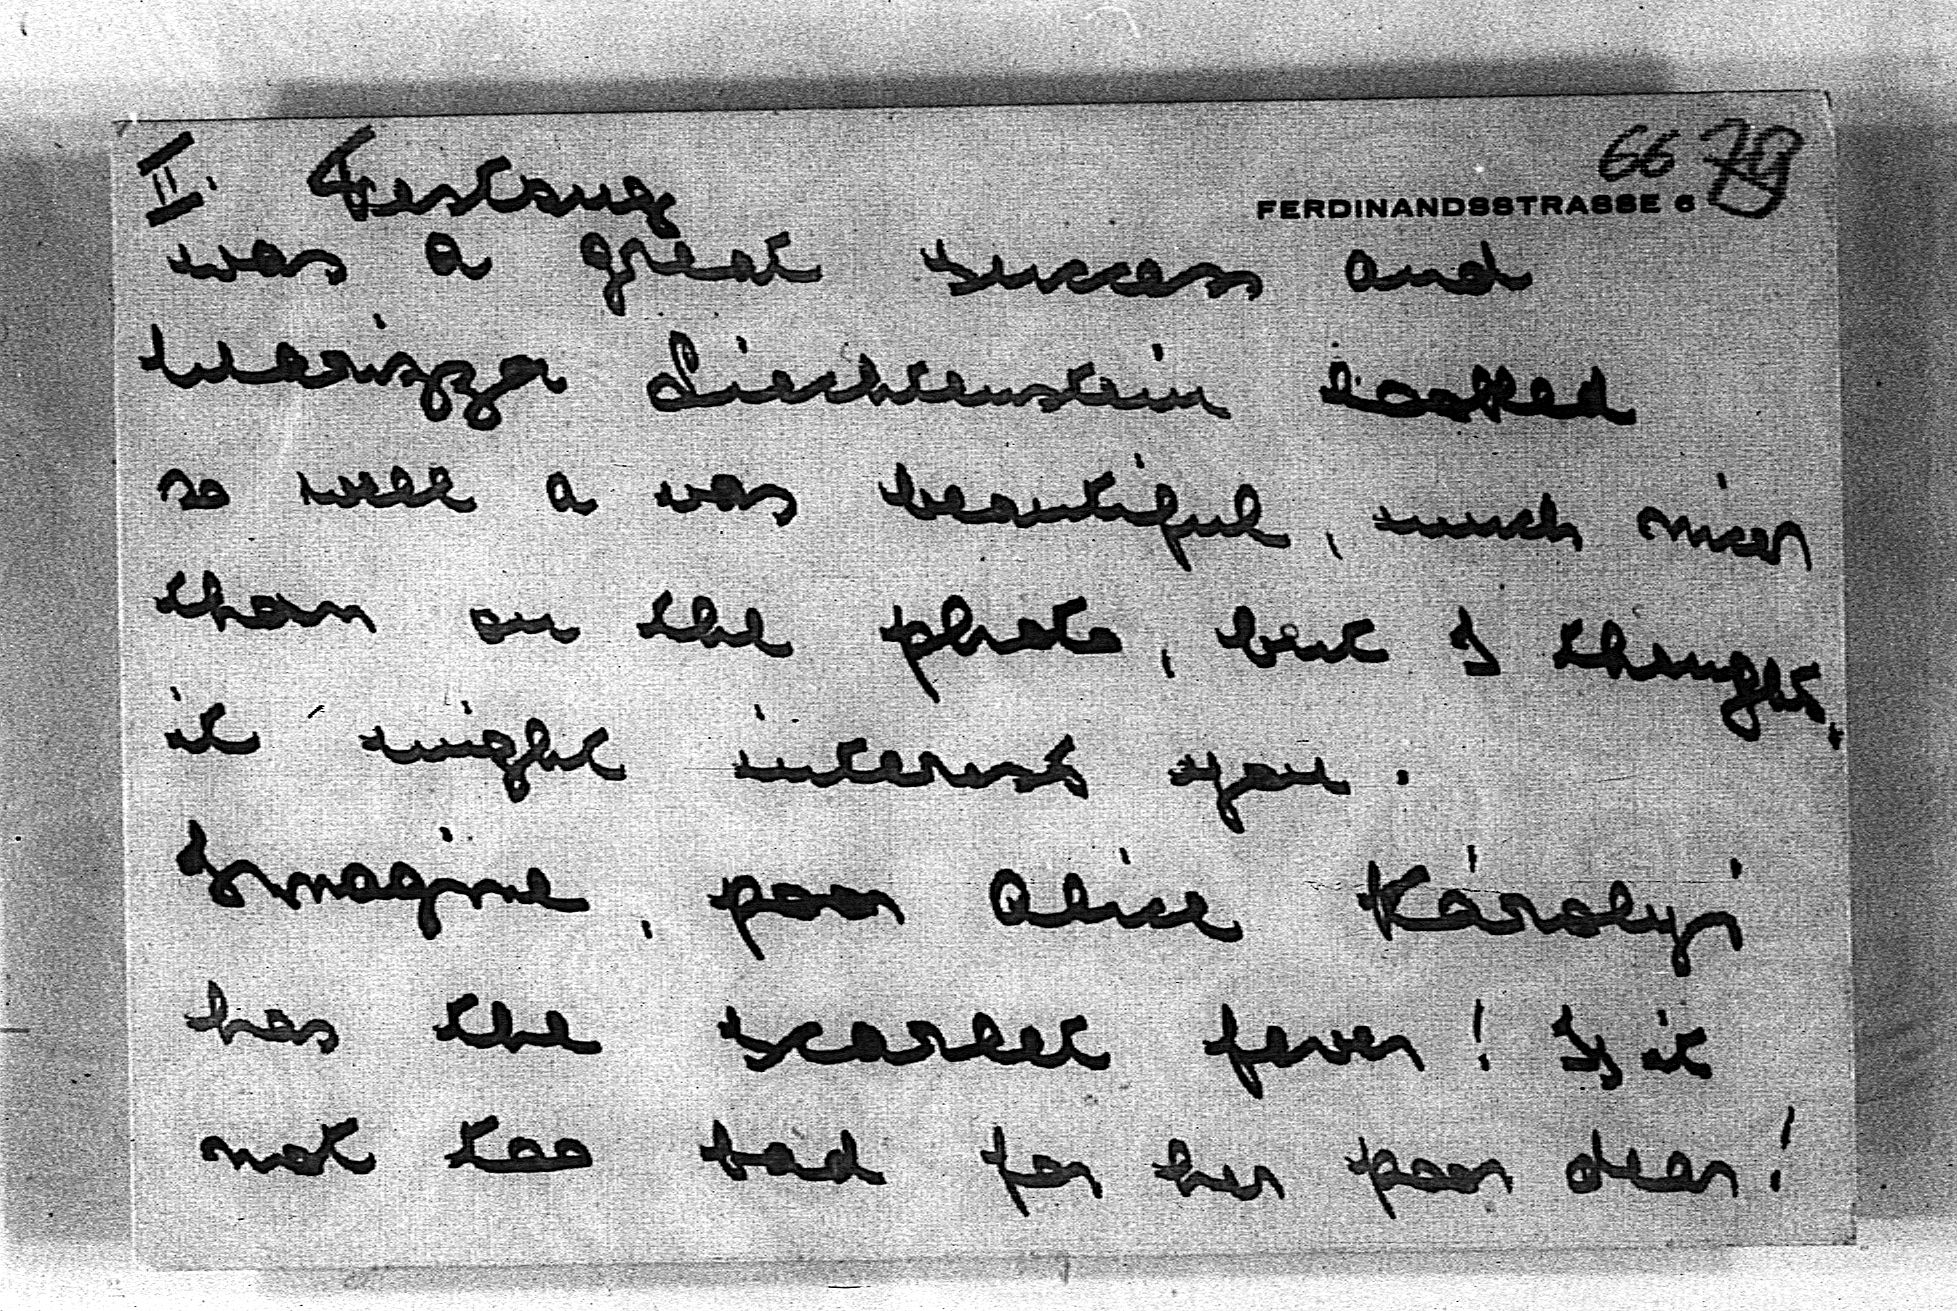 II. Festzug 66 79
FERDINANDSSTRASSE 6
was a great success and
Marizza Liechtenstein looked
so well a was beautiful, much nicer
than on the photo, but I thought,
it might interest you.
Imagine, poor Alice Károlyi
has the scarlet fever! Is it
not too bad for her poor dear!